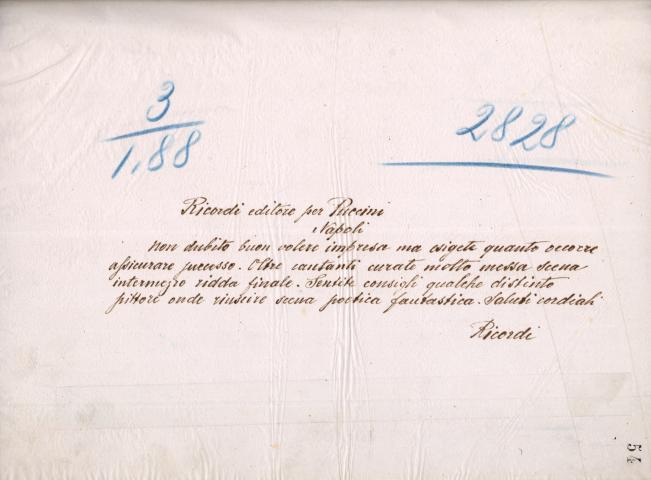 3
1.88
2828
Ricordi editore per Puccini
Napoli
Non dubito buon volere impresa ma esigete quanto occorre
assicurare successo. Oltre cantanti curate molto messa scena
intermezzo ridda finale. Sentite consigli qualche distinto
pittore onde riuscire scena poetica fantastica. Saluti cordiali
Ricordi
54